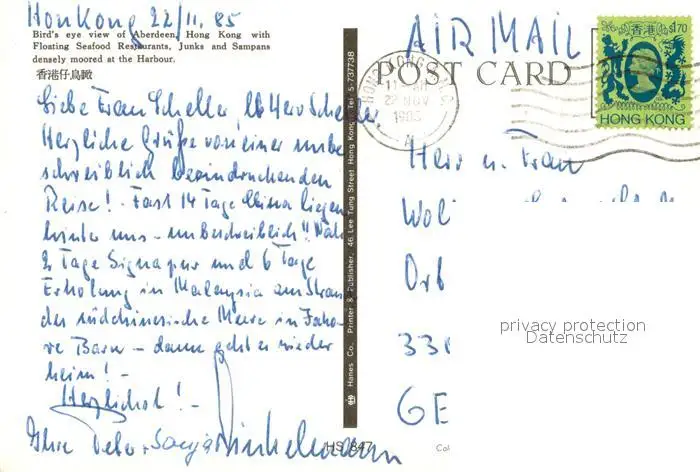 HonKong 22/11.85
Bird's eye view of Aberdeen, Hong Kong with
Floating Seafood Restaurants, Junks and Sampans
densely moored at the Harbour.
香港仔鳥瞰
Liebe Frau Scheller, lb Herr Scheller
Herzliche Grüße von einer unbe
schreiblich beeindruckenden
Reise! - Fast 14 Tage China liegen
hinter uns - unbeschreiblich!!
2 Tage Signapur und 6 Tage
Erholung in Malaysia am Stran
des südchinesische Meere in Joho
re Baru - dann geht es wieder
heim! -
Herzlichst! -
Ihre Peter + Sonja Winkelmann
Hanes Co. Printer & Publisher. 46 Lee Tung Street Hong Kong Tel: 5-737738
HS 847
AIR MAIL
POST CARD
HONG KONG
22 NOV
1985
香港
$1.70
HONG KONG
Herr u. Frau
Wol
Orb
338
GE
privacy protection
Datenschutz
Col